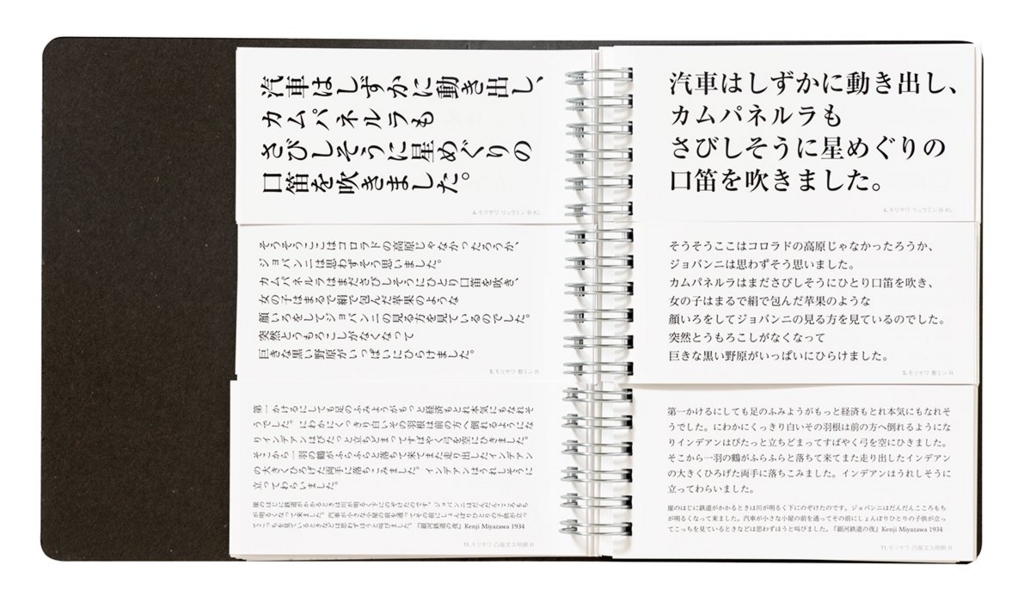 汽車はしずかに動き出し、
カムパネルラも
さびしそうに星めぐりの
口笛を吹きました。
そうそうここはコロラドの高原じゃなかったろうか、
ジョバンニは思わずそう思いました。
カムパネルラはまださびしそうにひとり口笛を吹き、
女の子はまるで絹で包んだ苹果のような
顔いろをしてジョバンニの見る方を見ているのでした。
突然とうもろこしがなくなって
巨きな黒い野原がいっぱいにひらけました。
第一かけるにしても足のふみようがもっと経済もとれ本気にもなれそ
うでした。にわかにくっきり白いその羽根は前の方へ倒れるようにな
りインデアンはぴたっと立ちどまってすばやく弓を空にひきました。
そこから一羽の鶴がふらふらと落ちて来てまた走り出したインデアン
の大きくひろげた両手に落ちこみました。インデアンはうれしそうに
立ってわらいました。
崖のはじに鉄道がかかるときは川が明るく下にのぞけたのです。ジョバンニはだんだんこころもち
が明るくなって来ました。汽車が小さな小屋の前を通ってその前にしょんぼりひとりの子供が立っ
てこっちを見ているときなどは思わずほうと叫びました。『銀河鉄道の夜』Kenji Miyazawa 1934
汽車はしずかに動き出し、
カムパネルラも
さびしそうに星めぐりの
口笛を吹きました。
そうそうここはコロラドの高原じゃなかったろうか、
ジョバンニは思わずそう思いました。
カムパネルラはまださびしそうにひとり口笛を吹き、
女の子はまるで絹で包んだ苹果のような
顔いろをしてジョバンニの見る方を見ているのでした。
突然とうもろこしがなくなって
巨きな黒い野原がいっぱいにひらけました。
第一かけるにしても足のふみようがもっと経済もとれ本気にもなれそ
うでした。にわかにくっきり白いその羽根は前の方へ倒れるようにな
りインデアンはぴたっと立ちどまってすばやく弓を空にひきました。
そこから一羽の鶴がふらふらと落ちて来てまた走り出したインデアン
の大きくひろげた両手に落ちこみました。インデアンはうれしそうに
立ってわらいました。
崖のはじに鉄道がかかるときは川が明るく下にのぞけたのです。ジョバンニはだんだんこころもち
が明るくなって来ました。汽車が小さな小屋の前を通ってその前にしょんぼりひとりの子供が立っ
てこっちを見ているときなどは思わずほうと叫びました。『銀河鉄道の夜』Kenji Miyazawa 1934